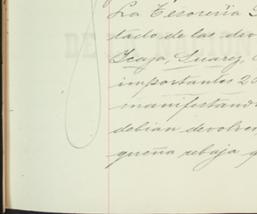 La Tesorería G
tado de las div
Icaza, Suarez,
importantes 20
manifestand
debian devolver
queña rebaja q